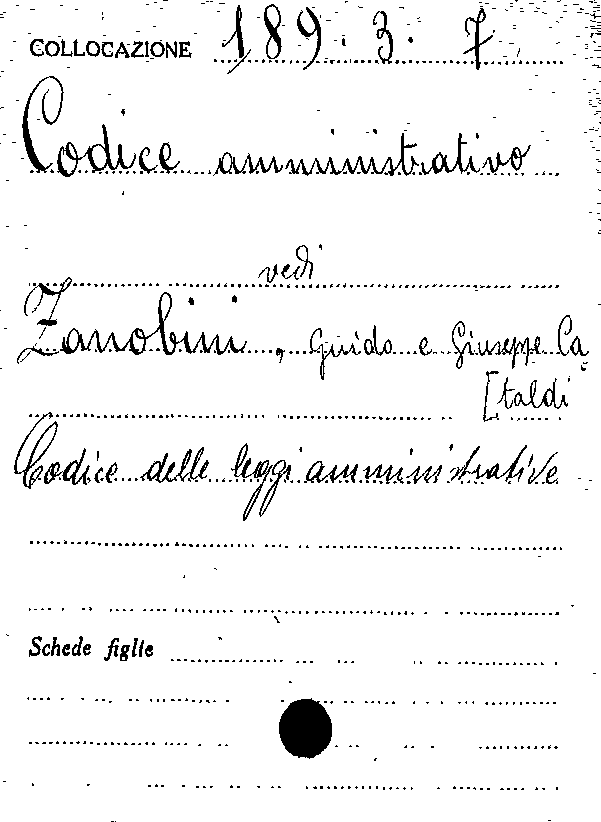 COLLOCAZIONE 189. 3. 7
Codice amministrativo
vedi
Zanobini, Guido e Giuseppe Ca
[taldi
Codice delle leggi amministrative
Schede figlie